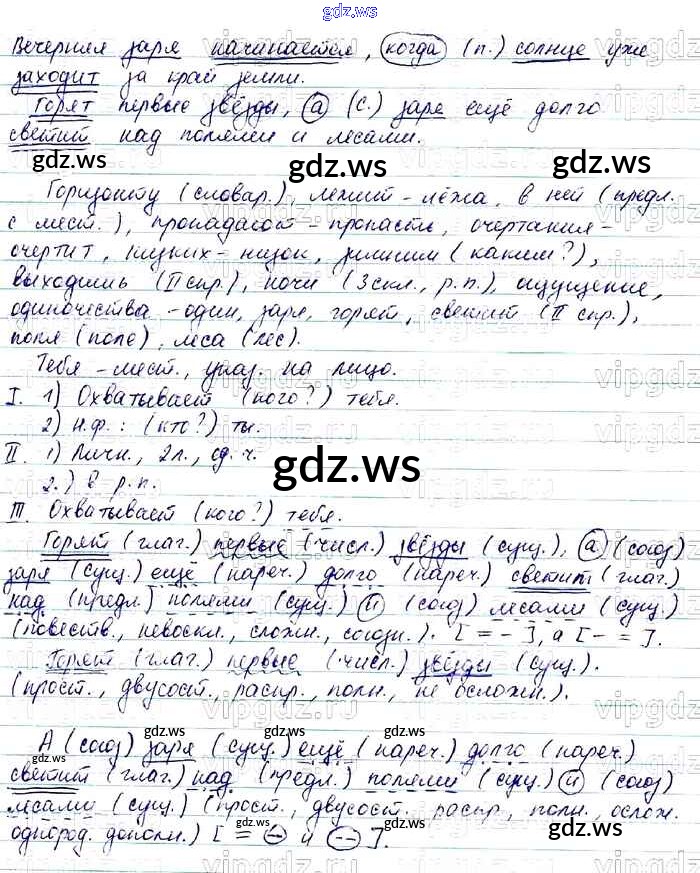 gdz.ws
Вечерняя заря начинается, когда (п.) солнце уже
заходит за край земли.
Горят первые звёзды, а (с.) заря ещё долго
светит над полями и лесами.
gdz.ws gdz.ws
Горизонту (словар.), лежит - лёжа, в ней (предл.
с мест.), пропадают - пропасть, очертания -
очертит, низких - низок, зимним (каким?),
выходишь (II спр.), ночи (3 скл., р.п.), ощущение,
одиночества - один, заря, горят, светит (II спр.),
поля (поле), леса (лес).
Тебя - мест., указ. на лицо.
I. 1) Охватывает (кого?) тебя.
2) н.ф.: (кто?) ты.
II. 1) Личн., 2 л., ед. ч.
2.) в р.п.
gdz.ws
III. Охватывает (кого?) тебя.
Горят (глаг.) первые (числ.) звёзды (сущ.), а (союз)
заря (сущ.) ещё (нареч.) долго (нареч.) светит (глаг.)
над (предл.) полями (сущ.) и (союз) лесами (сущ.)
(повеств., невоскл., сложн., союзн.). [= -], а [- =].
Горят (глаг.) первые (числ.) звёзды (сущ.).
(прост., двусост., распр., полн., не осложн.).
gdz.ws gdz.ws
А (союз) заря (сущ.) ещё (нареч.) долго (нареч.)
светит (глаг.) над (предл.) полями (сущ.) и (союз)
лесами (сущ.) (прост., двусост., распр., полн., ослож.
однород. дополн.) [= и].
gdz.ws gdz.ws gdz.ws